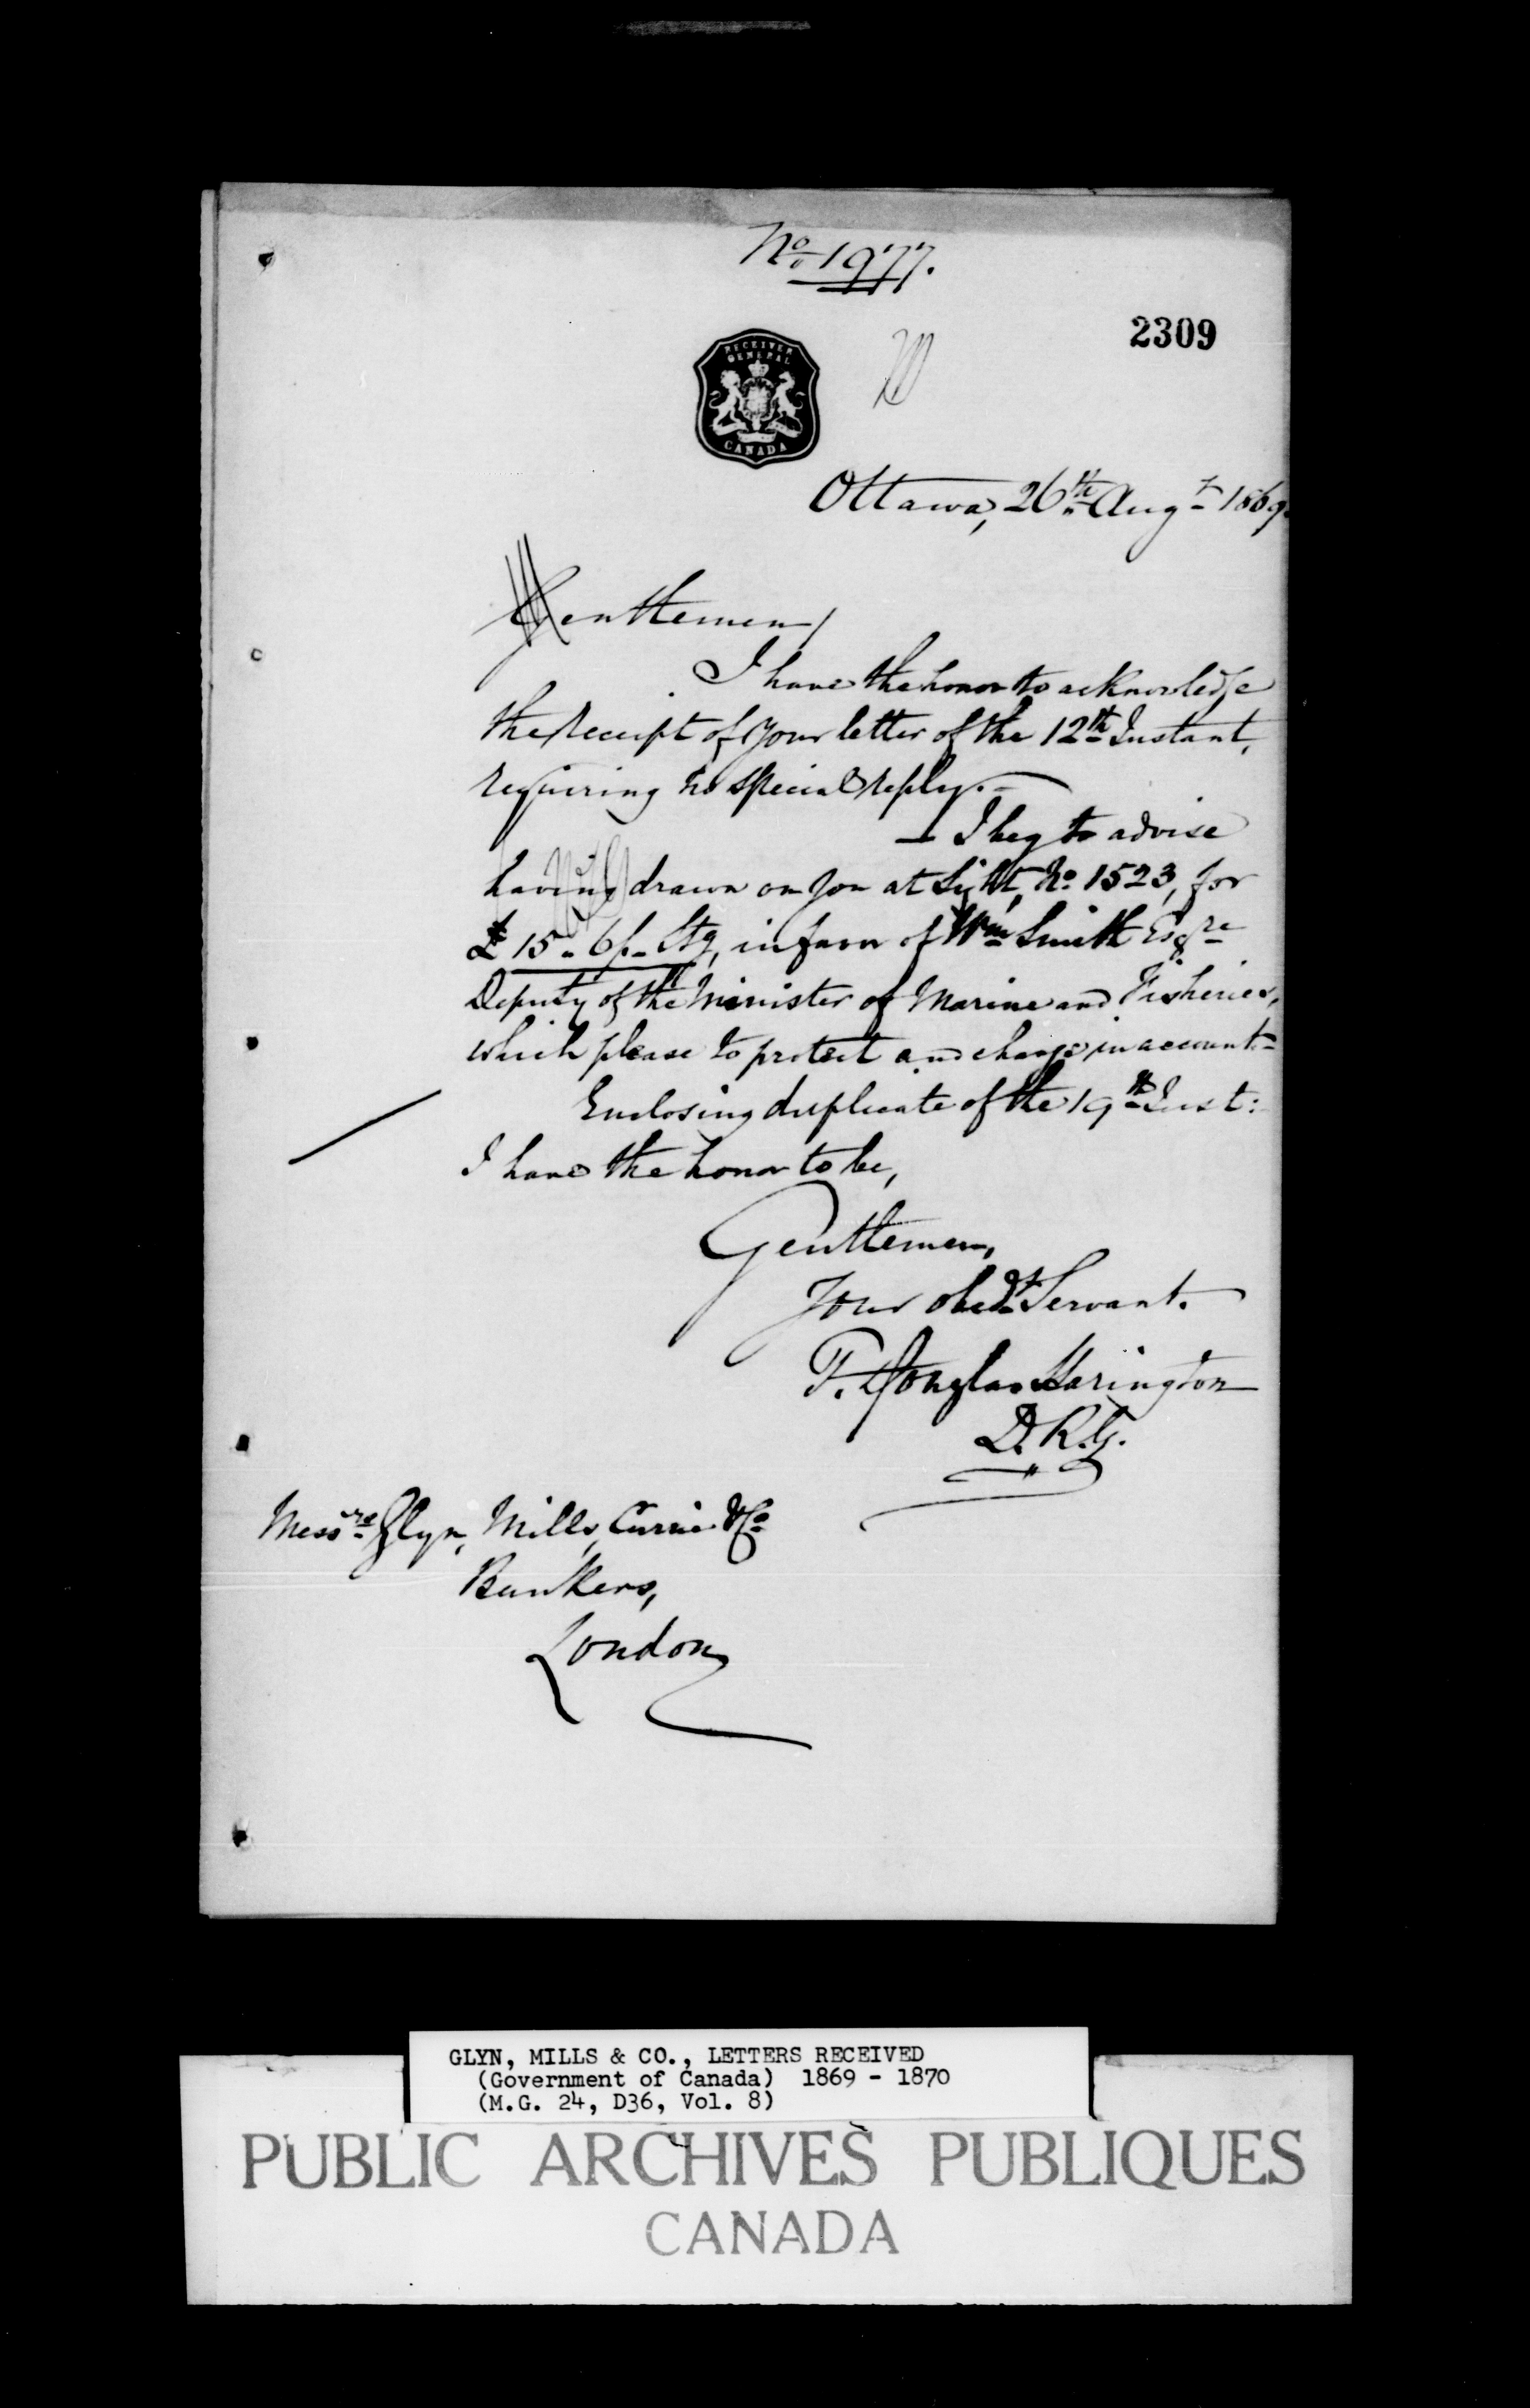 No. 1977.
2309
RECEIVER
GENERAL
CANADA
Ottawa, 26th Augt 1869.
Gentlemen,
I have the honor to acknowledge
the receipt of your letter of the 12th Instant,
requiring no special reply.—
— I beg to advise
having drawn on you at Sight, No. 1523, for
£15 " 6/- Stg, in favor of Wm Smith Esqre
Deputy of the Minister of Marine and Fisheries,
which please to protect and charge in account-
Enclosing duplicate of the 19th Inst:
I have the honor to be,
Gentlemen,
Your obedt Servant.
T. Douglas Harington
D.R.G.
Messrs Glyn, Mills, Currie & Co
Bankers,
London
GLYN, MILLS & CO., LETTERS RECEIVED
(Government of Canada) 1869 - 1870
(M.G. 24, D36, Vol. 8)
PUBLIC ARCHIVES PUBLIQUES
CANADA